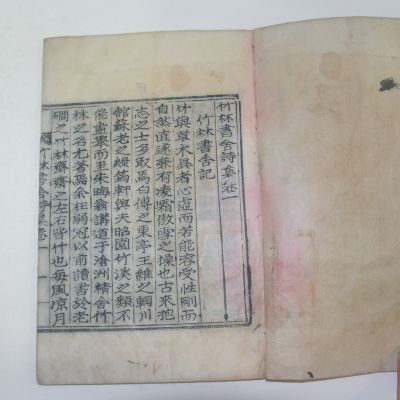 竹林書舍詩集卷一
竹林書舍記
竹與草木異者心虛而若能容受性剛而
自然直遂兼有凌霜傲雪之操也古來抱
志之士多取焉白傅之東亭王維之輞川
舘蘇老之綠筠軒與夫昭園竹溪之類不
能盡擧而至朱晦翁講道于滄洲精舍竹
林之名尤著焉余在弱冠以前讀書於老
磵之竹林齋齋之左右皆竹也每風凉月
竹林書舍詩集卷一